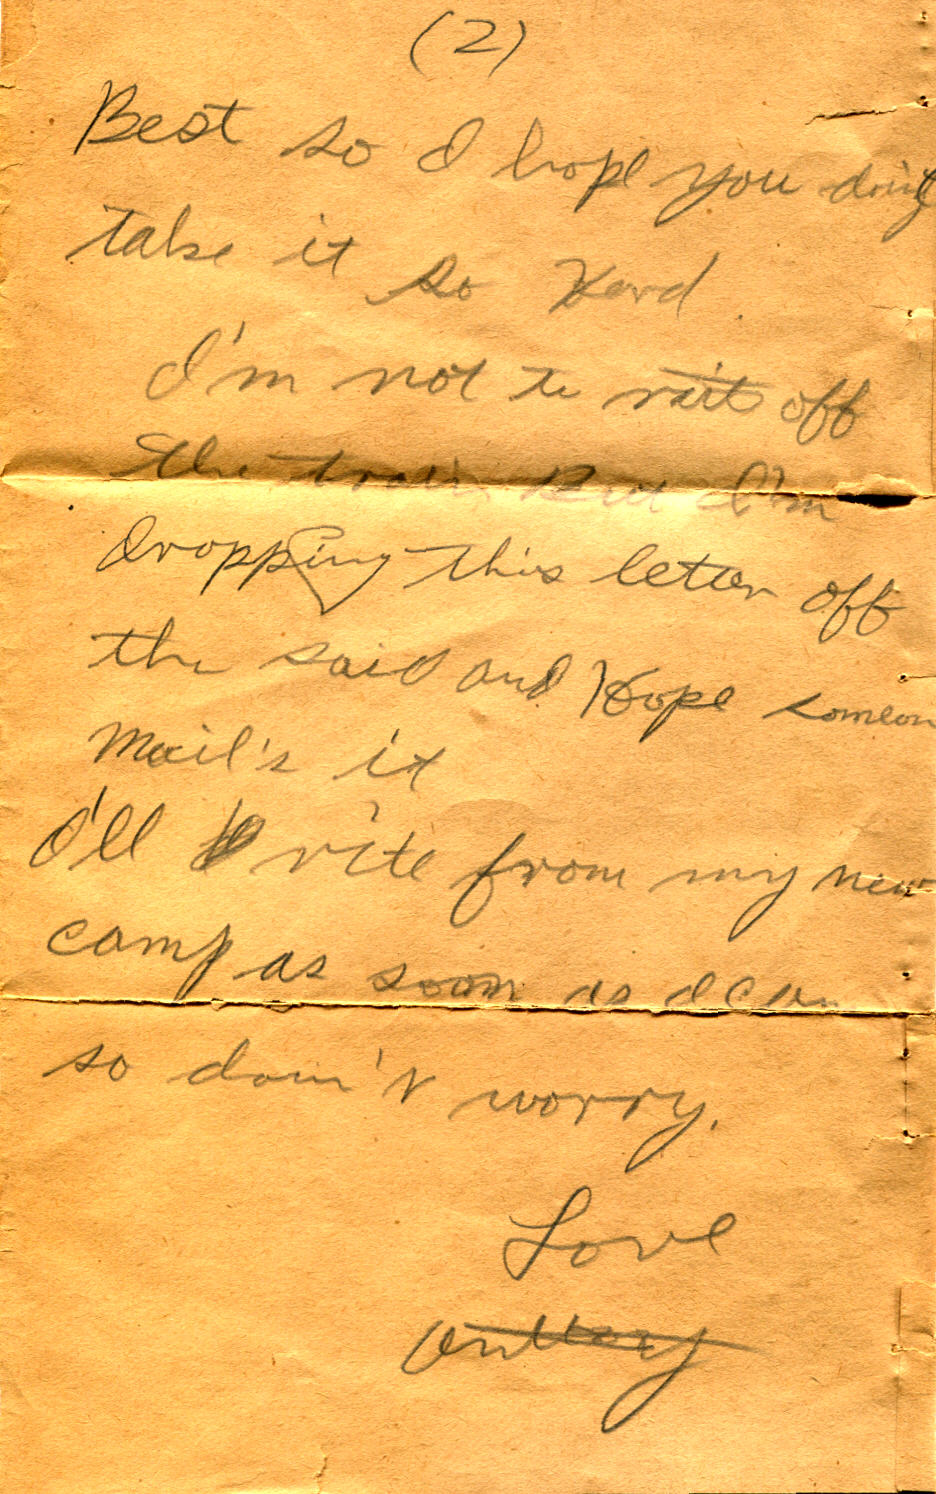 (2)
Best so I hope you don't
take it so Hard.
I'm not to rite off
the train But I'm
dropping this letter off
the said and Hope someon
Mail's it
I'll rite from my new
camp as soon as I can
so doin't worry.
Love